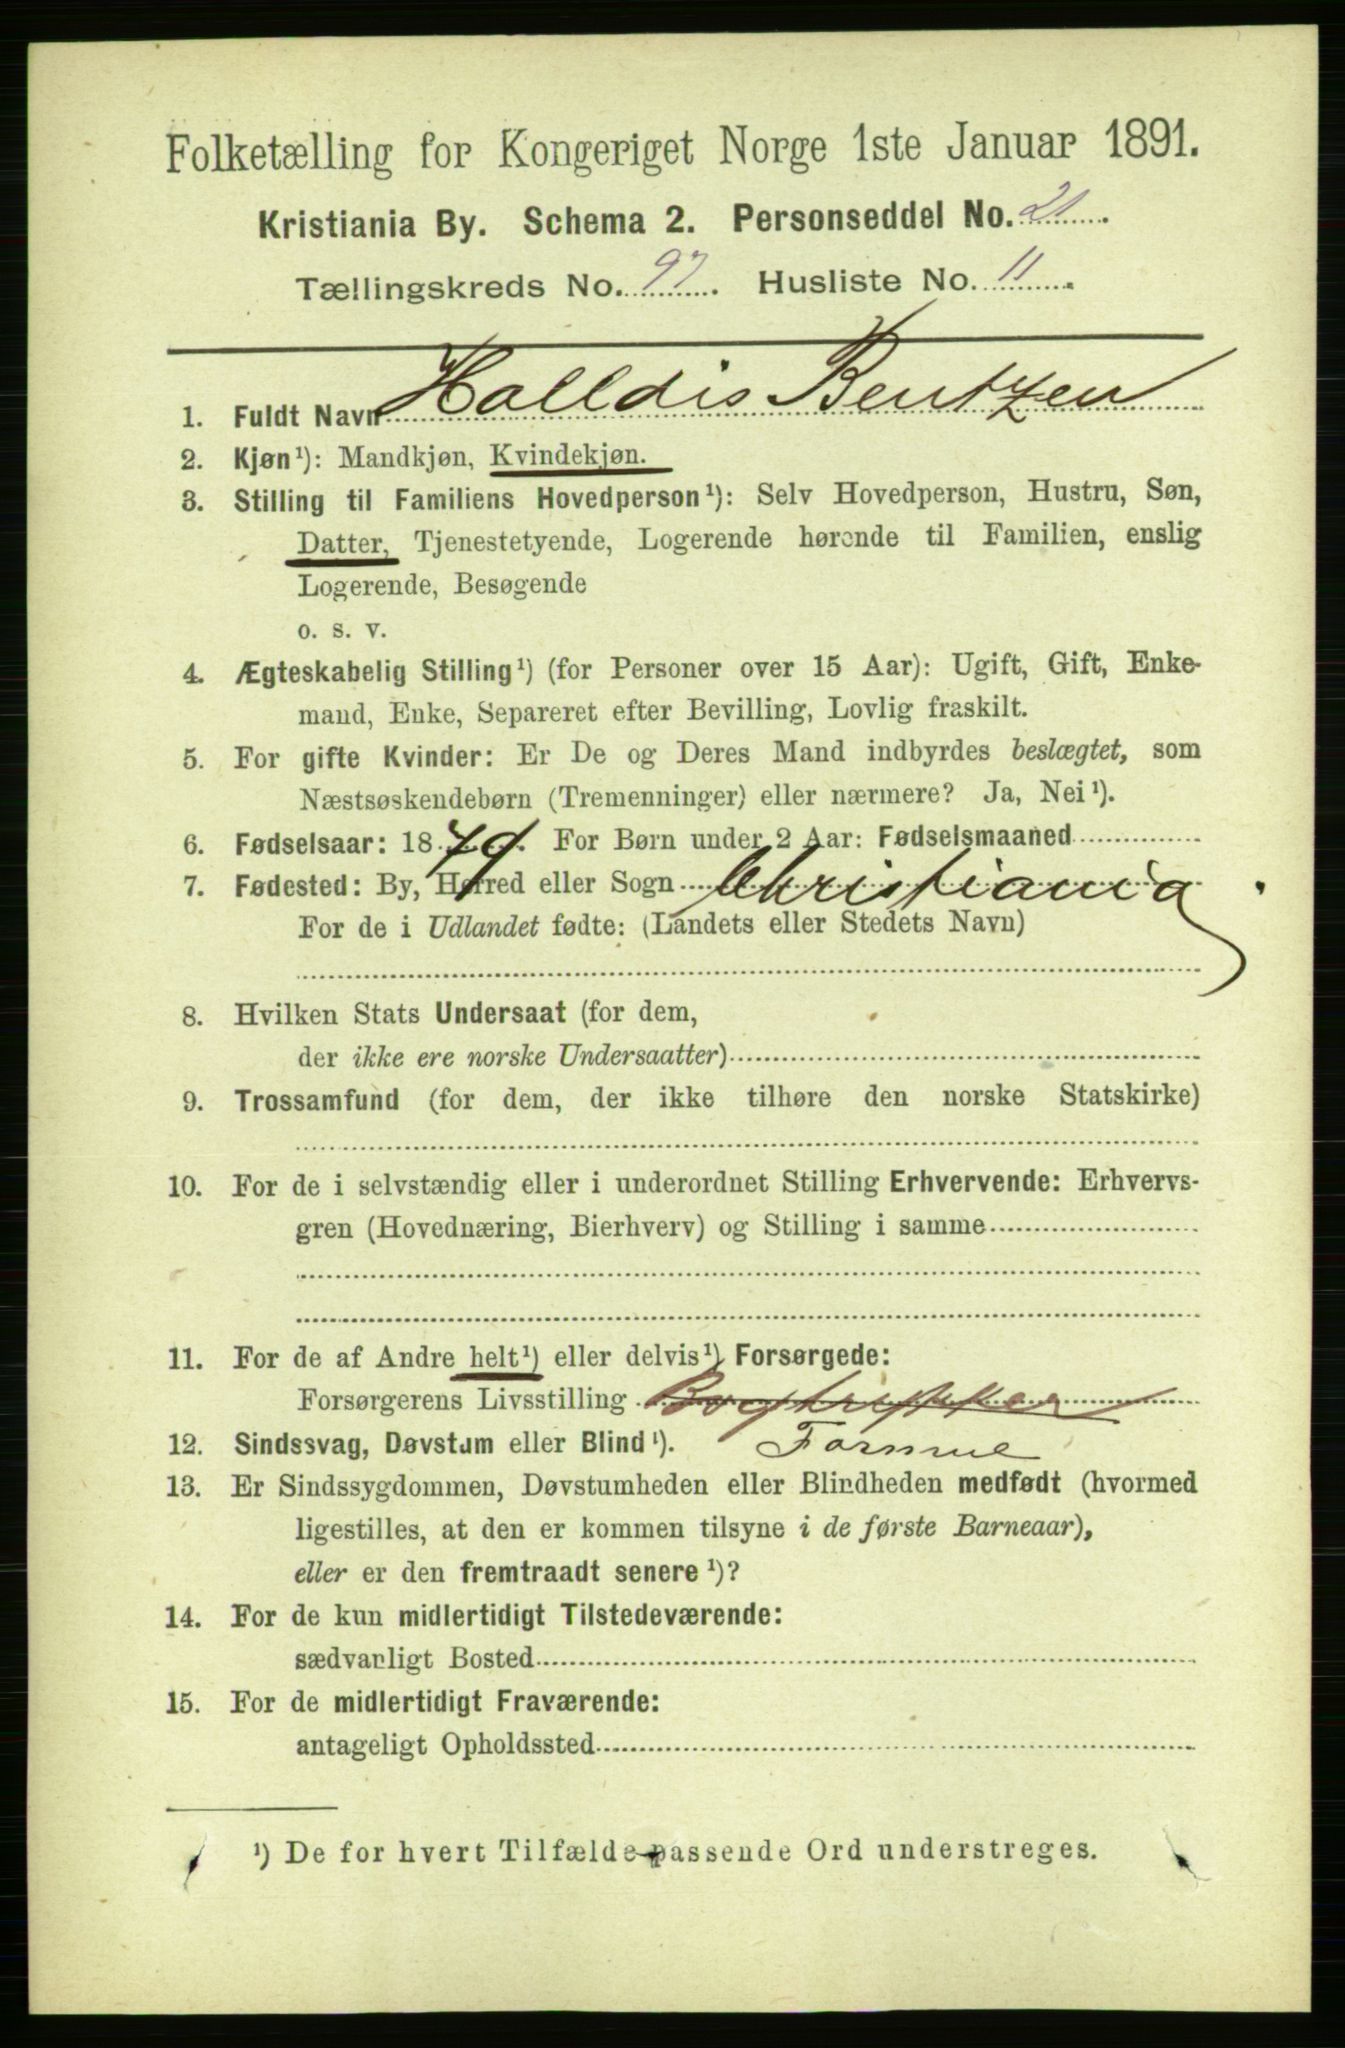 Folketælling for Kongeriget Norge 1ste Januar 1891.
Kristiania By. Schema 2. Personseddel No. 21.
Tællingskreds No. 97. Husliste No. 11.
1. Fuldt Navn Halldis Bentzen
2. Kjøn¹): Mandkjøn, Kvindekjøn.
3. Stilling til Familiens Hovedperson¹): Selv Hovedperson, Hustru, Søn,
Datter, Tjenestetyende, Logerende hørende til Familien, enslig
Logerende, Besøgende
o. s. v.
4. Ægteskabelig Stilling¹) (for Personer over 15 Aar): Ugift, Gift, Enke-
mand, Enke, Separeret efter Bevilling, Lovlig fraskilt.
5. For gifte Kvinder: Er De og Deres Mand indbyrdes beslægtet, som
Næstsøskendebørn (Tremenninger) eller nærmere? Ja, Nei¹).
6. Fødselsaar: 1879. For Børn under 2 Aar: Fødselsmaaned
7. Fødested: By, Herred eller Sogn Christiania
For de i Udlandet fødte: (Landets eller Stedets Navn)
8. Hvilken Stats Undersaat (for dem,
der ikke ere norske Undersaatter)
9. Trossamfund (for dem, der ikke tilhøre den norske Statskirke)
10. For de i selvstændig eller i underordnet Stilling Erhvervende: Erhvervs-
gren (Hovednæring, Bierhverv) og Stilling i samme
11. For de af Andre helt¹) eller delvis¹) Forsørgede:
Forsørgerens Livsstilling Bogtrykker
12. Sindssvag, Døvstum eller Blind¹). Formue
13. Er Sindssygdommen, Døvstumheden eller Blindheden medfødt (hvormed
ligestilles, at den er kommen tilsyne i de første Barneaar),
eller er den fremtraadt senere¹)?
14. For de kun midlertidigt Tilstedeværende:
sædvanligt Bosted
15. For de midlertidigt Fraværende:
antageligt Opholdssted
¹) De for hvert Tilfælde passende Ord understreges.